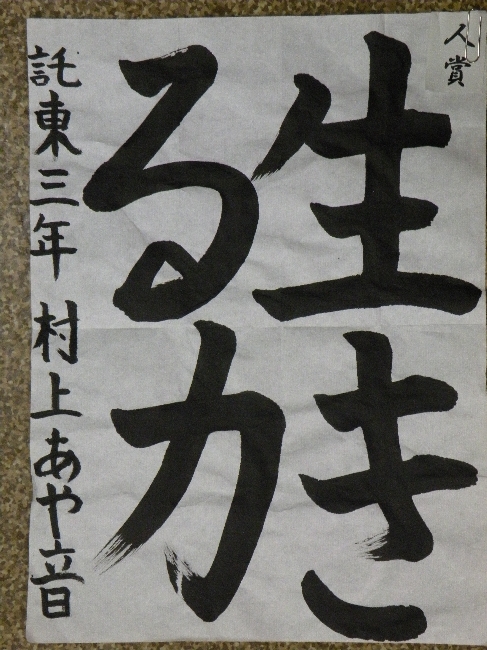 入賞
生き
る力
託東三年 村上あや音